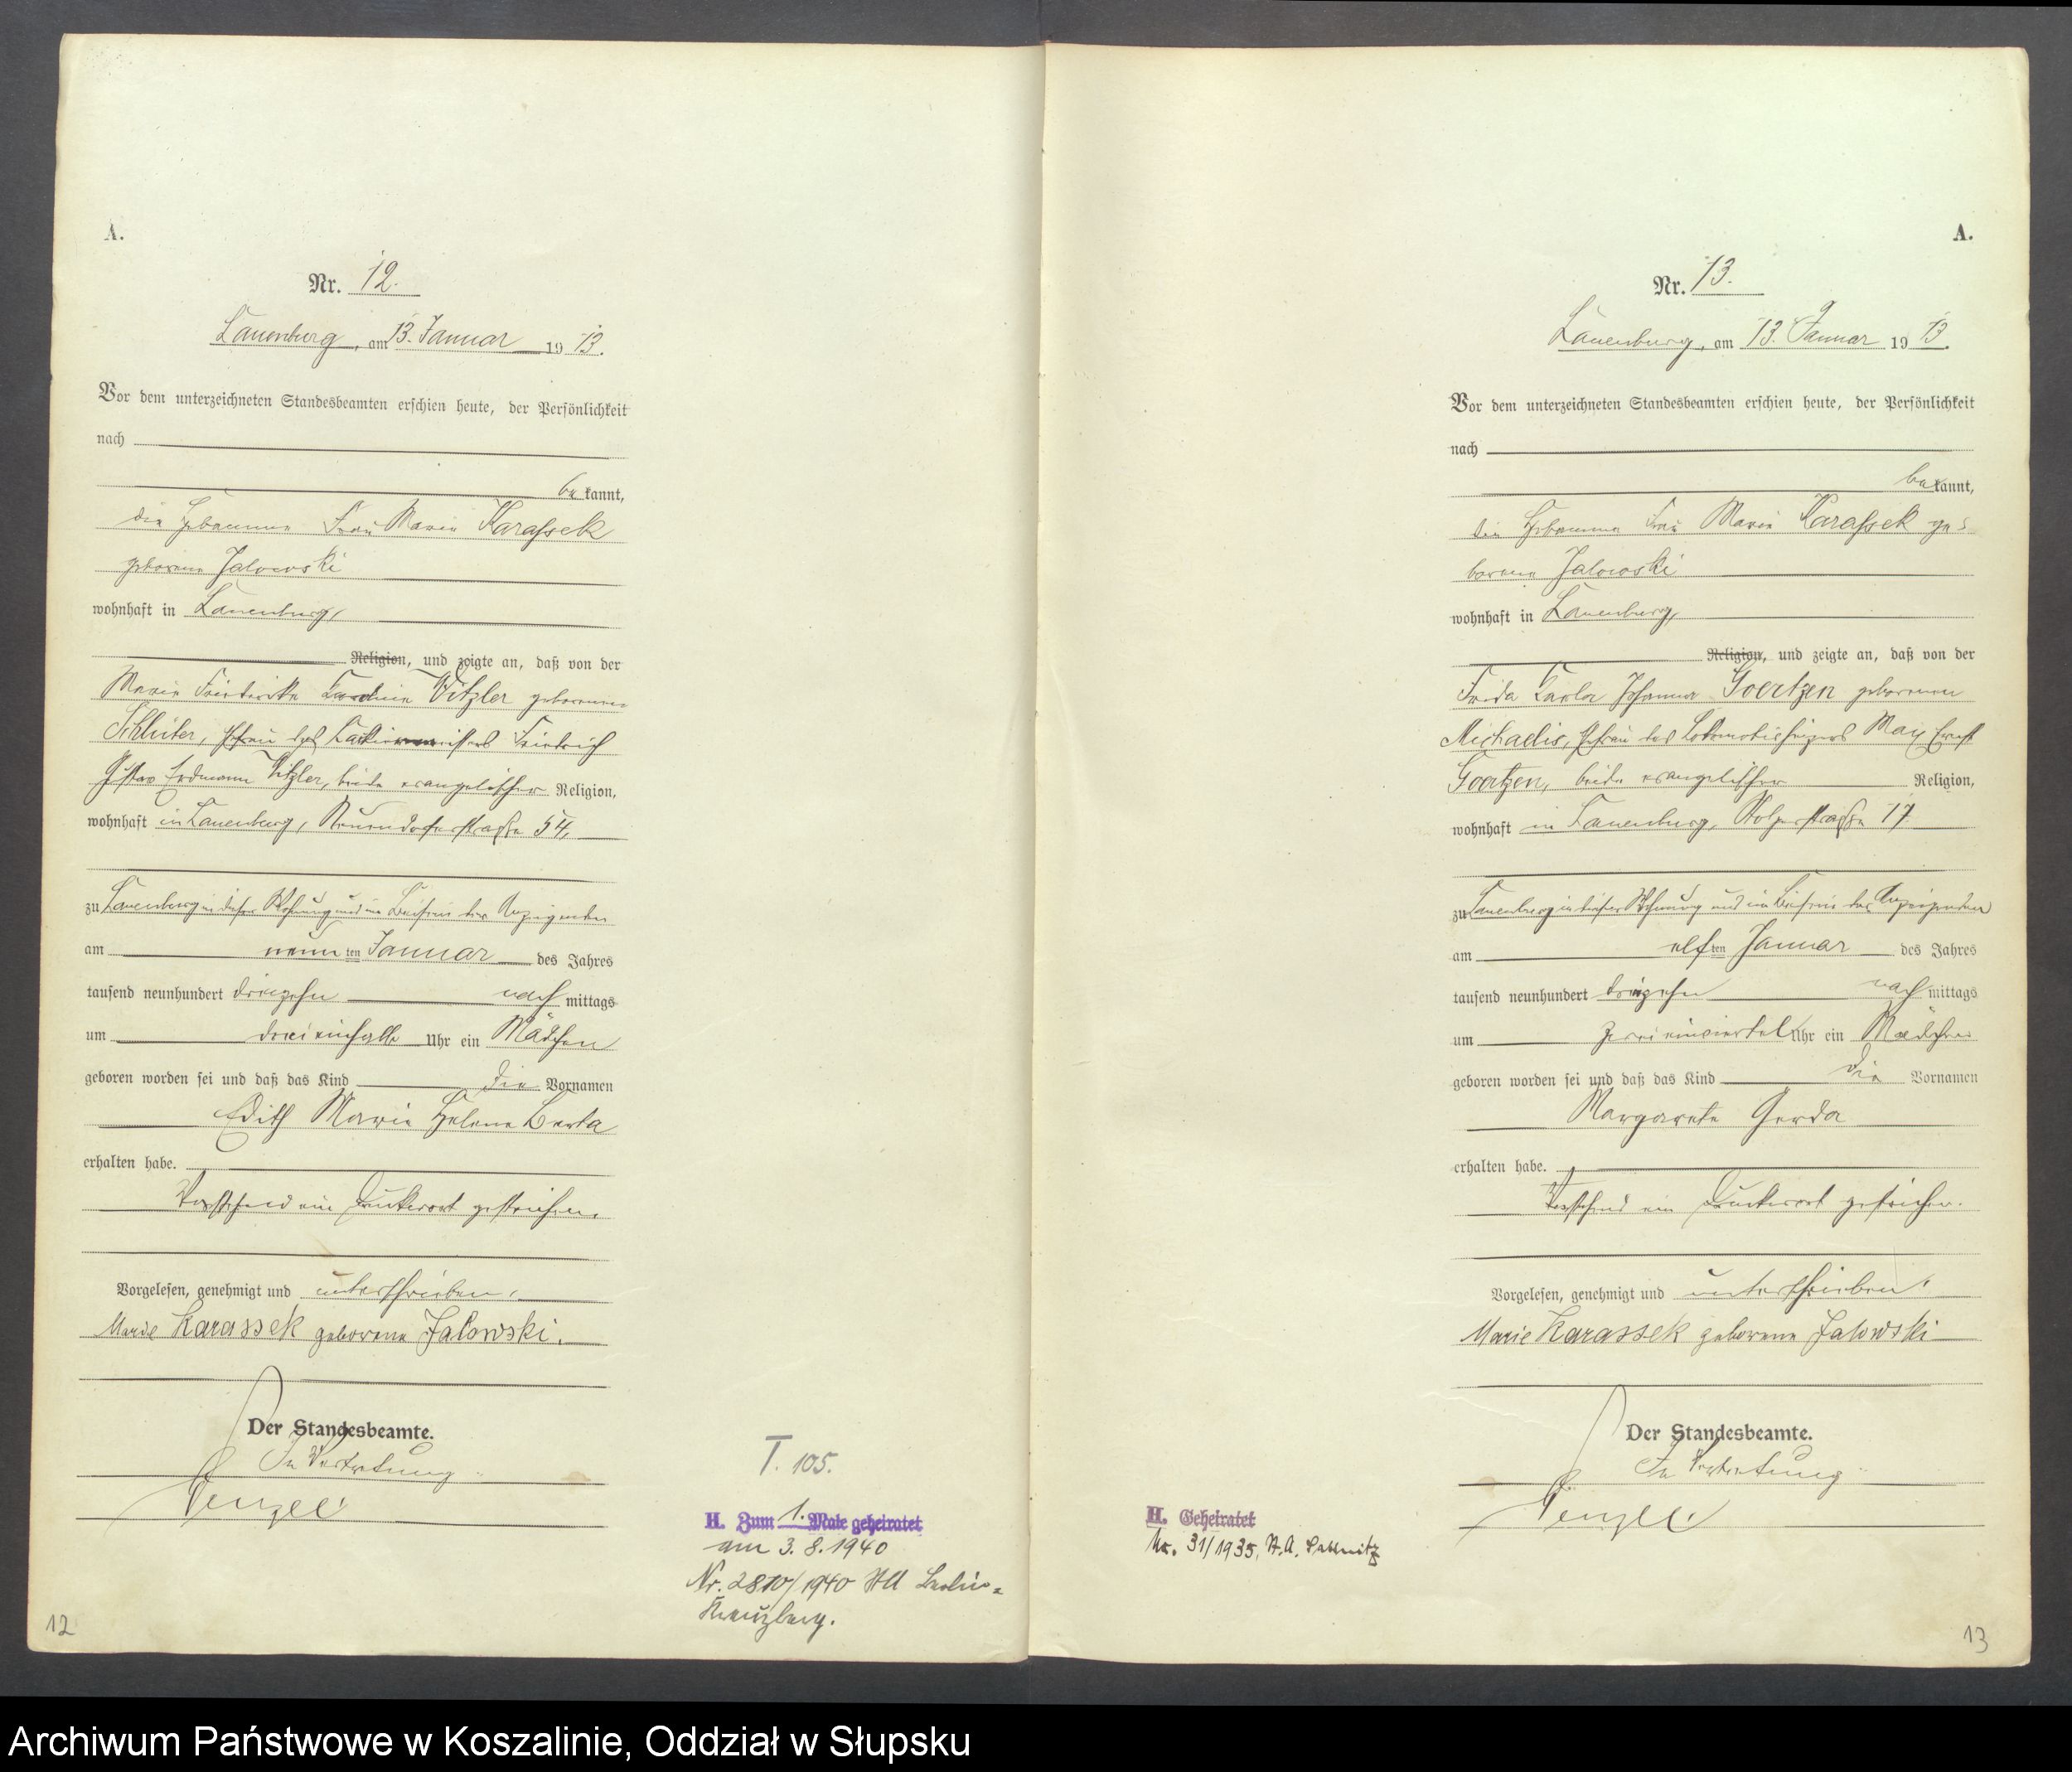 A.
Nr. 12.
Lauenburg, am 13. Januar 1913.
Vor dem unterzeichneten Standesbeamten erschien heute, der Persönlichkeit
nach
bekannt,
die Hebamme Frau Marie Karassek
geborene Jalowski
wohnhaft in Lauenburg,
Religion, und zeigte an, daß von der
Marie Friederike Vitzler geborenen
Schlüter, Ehefrau des Friedrich
Gustav Erdmann Vitzler, beide evangelischer Religion,
wohnhaft in Lauenburg, Neuendorferstraße 54,
zu Lauenburg in dieser Wohnung und im Beisein der Anzeigenden
am neunten Januar des Jahres
tausend neunhundert dreizehn nachmittags
um dreieinhalb Uhr ein Mädchen
geboren worden sei und daß das Kind die Vornamen
Edith Marie Helene Berta
erhalten habe.
Vorstehend ein Druckwort gestrichen.
Vorgelesen, genehmigt und unterschrieben.
Marie Karassek geborene Jalowski.
Der Standesbeamte.
In Vertretung
T. 105.
H. Zum 1. Male geheiratet
am 3.8.1940
Nr. 2810/1940 StA Berlin-
Kreuzberg.
12
A.
Nr. 13.
Lauenburg, am 13. Januar 1913.
Vor dem unterzeichneten Standesbeamten erschien heute, der Persönlichkeit
nach
bekannt,
die Hebamme Frau Marie Karassek ge-
borene Jalowski
wohnhaft in Lauenburg,
Religion, und zeigte an, daß von der
Frida Karla Johanna Goertzen geborenen
Michaelis, Ehefrau des Lokomotivheizers Max Ernst
Goertzen, beide evangelischer Religion,
wohnhaft in Lauenburg, Stolperstraße 17
zu Lauenburg in dieser Wohnung und im Beisein der Anzeigenden
am elften Januar des Jahres
tausend neunhundert dreizehn nachmittags
um zweieinviertel Uhr ein Mädchen
geboren worden sei und daß das Kind die Vornamen
Margarete Gerda
erhalten habe.
Vorstehend ein Druckwort gestrichen.
Vorgelesen, genehmigt und unterschrieben.
Marie Karassek geborene Jalowski
Der Standesbeamte.
In Vertretung
H. Geheiratet
Nr. 31/1935, St.A.
13
Archiwum Państwowe w Koszalinie, Oddział w Słupsku